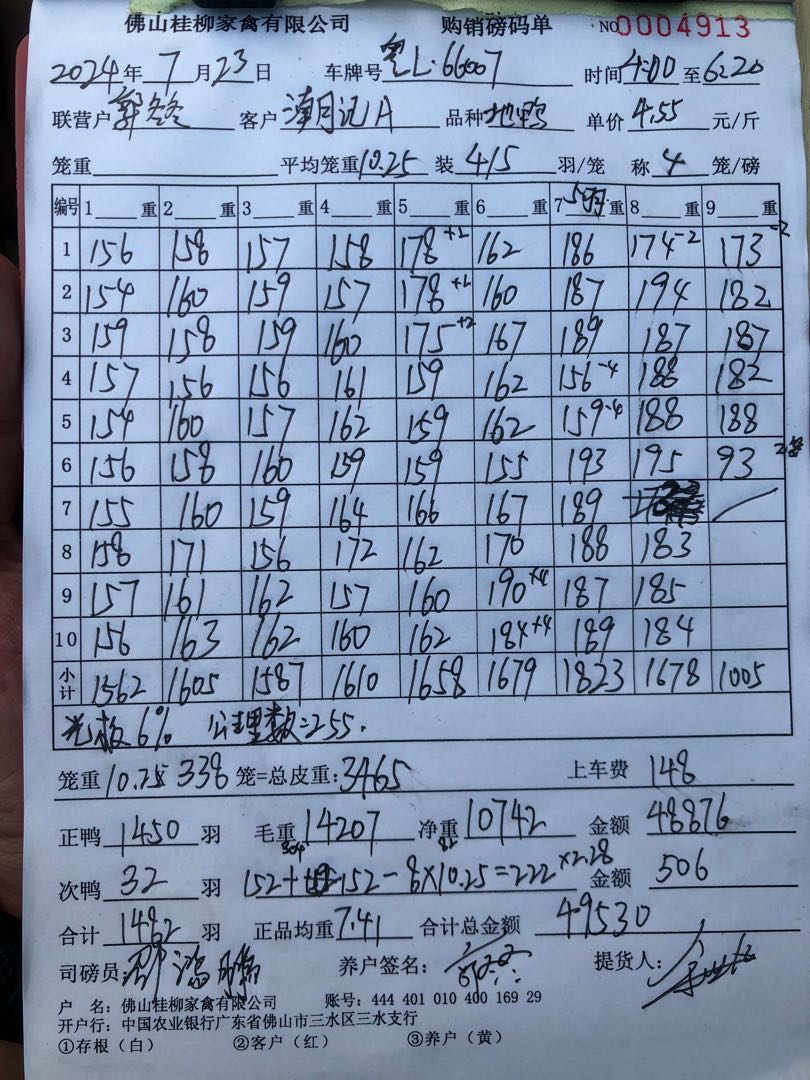 佛山桂柳家禽有限公司 购销磅码单 NO0004913
2024年7月23日 车牌号粤L·66007 时间4:00至6:20
联营户 客户 满月记A 品种 地鸭 单价 4.55 元/斤
笼重 平均笼重10.25 装 4/5 羽/笼 称 4 笼/磅
编号 1 重 2 重 3 重 4 重 5 重 6 重 7 5羽 重 8 重 9 重
1 156 158 157 158 178+2 162 186 174-2 173-2
2 154 160 159 157 178+2 160 187 194 182
3 159 158 159 160 175+2 167 189 187 187
4 157 156 156 161 159 162 156-4 188 182
5 154 160 157 162 159 162 159-4 188 188
6 156 158 160 159 159 155 193 195 93 2笼
7 155 160 159 164 166 167 189
8 158 171 156 172 162 170 188 183
9 157 161 162 157 160 190+4 187 185
10 156 163 162 160 162 184+4 189 184
小计 1562 1605 1587 1610 1658 1679 1823 1678 1005
光板6% 公里数=255.
笼重 10.25 338 笼=总皮重:3465 上车费 148
正鸭 1450 羽 毛重 14207 净重 10742 金额 48876
304 82
次鸭 32 羽 152+152-8×10.25=222×2.28 金额 506
合计 1482 羽 正品均重 7.41 合计总金额 49530
司磅员: 养户签名: 提货人:
户 名:佛山桂柳家禽有限公司 账号:444 401 010 400 169 29
开户行:中国农业银行广东省佛山市三水区三水支行
①存根(白) ②客户(红) ③养户(黄)